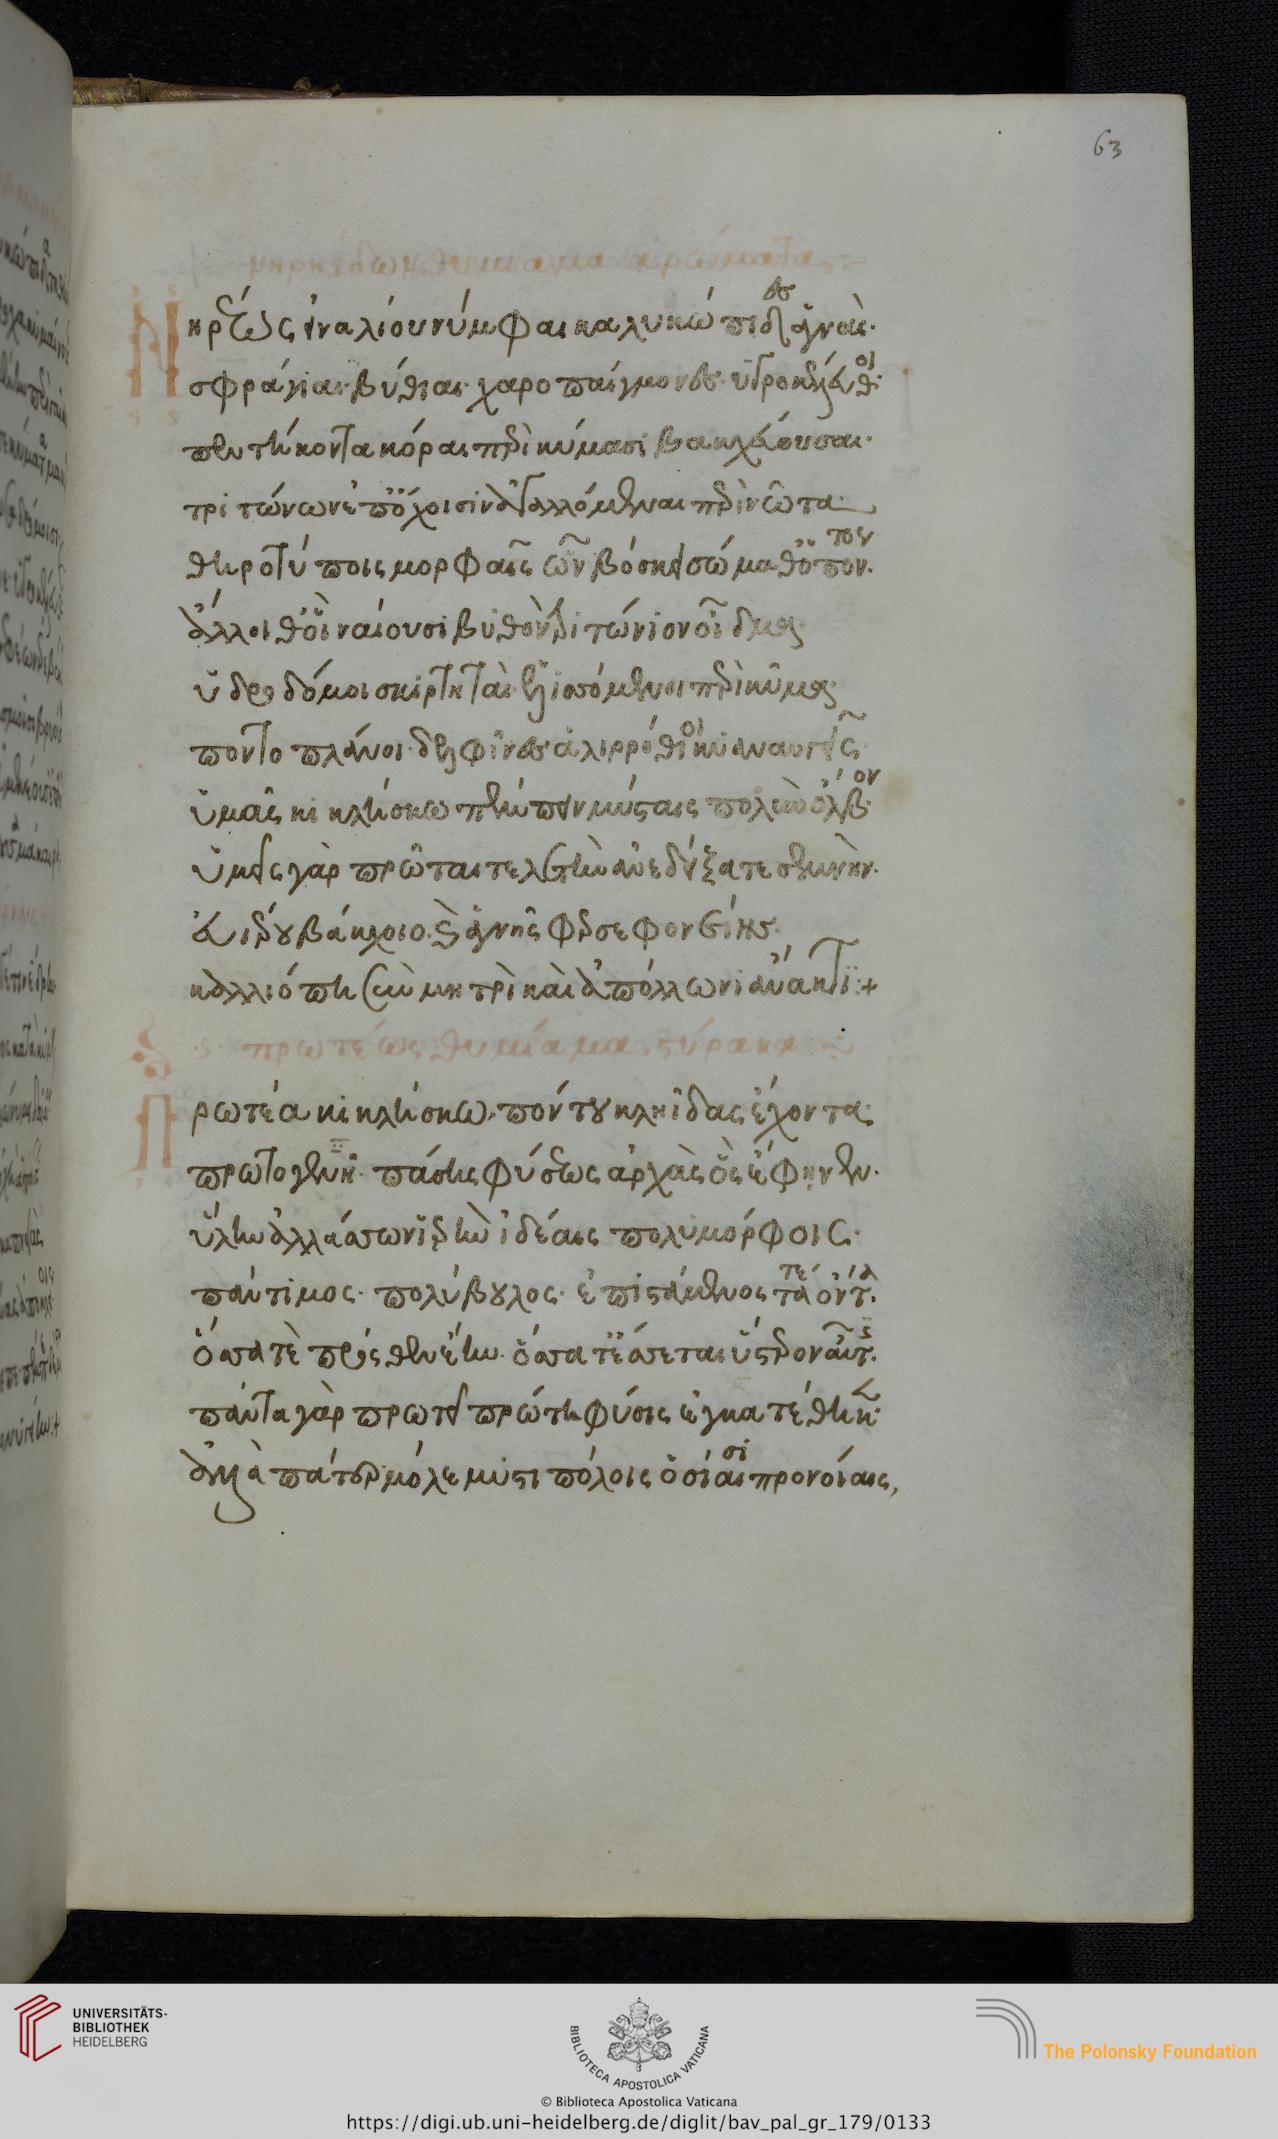 63
νηρηΐδων θυμίαμα ἀρώματα
Νηρέως εἰναλίου νύμφαι καλυκώπιδες ἁγναὶ·
σφράγιαι· βύθιαι· χαροπαίγμονες· ὑγροκέλευθοι·
πεντήκοντα κόραι περὶ κύμασι βακχεύουσαι·
τριτώνων ἐπ' ὄχοισιν ἀγαλλόμεναι περὶ νῶτα·
θηροτύποις μορφαῖς ὧν βόσκει σώμαθ' ὁ πόντον.
ἄλλοι θ' οἳ ναίουσι βυθὸν τριτώνιον οἶδμα·
ὑδρόδομοι σκιρτηταὶ· ἑλισσόμενοι περὶ κῦμα·
ποντοπλάνοι· δελφῖνες ἁλιρρόθιοι κυαναυγεῖς·
ὑμᾶς κικλήσκω πέμπειν μύσταις πολὺν ὄλβον·
ὑμεῖς γὰρ πρῶται τελετὴν ἀνεδείξατε σεμνὴν·
εὐιέρου βάκχοιο· καὶ ἁγνῆς φερσεφονείης·
καλλιόπη σὺν μητρὶ καὶ ἀπόλλωνι ἄνακτι:+
πρωτέως θυμίαμα, στύρακα:~
Πρωτέα κικλήσκω, πόντου κληῖδας ἔχοντα·
πρωτογενῆ· πάσης φύσεως ἀρχὰς ὃς ἔφηνεν·
ὕλην ἀλλάσσων ἱερὴν ἰδέαις πολυμόρφοις·
πάντιμος· πολύβουλος· ἐπιστάμενος τά τ' ἐόντα.
ὅσσα τὲ πρόσθεν ἔην· ὅσσα τ' ἔσσεται ὕστερον αὖτις.
πάντα γὰρ πρωτεῖ πρώτη φύσις ἐγκατέθηκε·
ἀλλὰ πάτερ μόλε μυστιπόλοις ὁσίαισι προνοίαις,
UNIVERSITÄTS-
BIBLIOTHEK
HEIDELBERG
BIBLIOTECA APOSTOLICA VATICANA
The Polonsky Foundation
© Biblioteca Apostolica Vaticana
https://digi.ub.uni-heidelberg.de/diglit/bav_pal_gr_179/0133